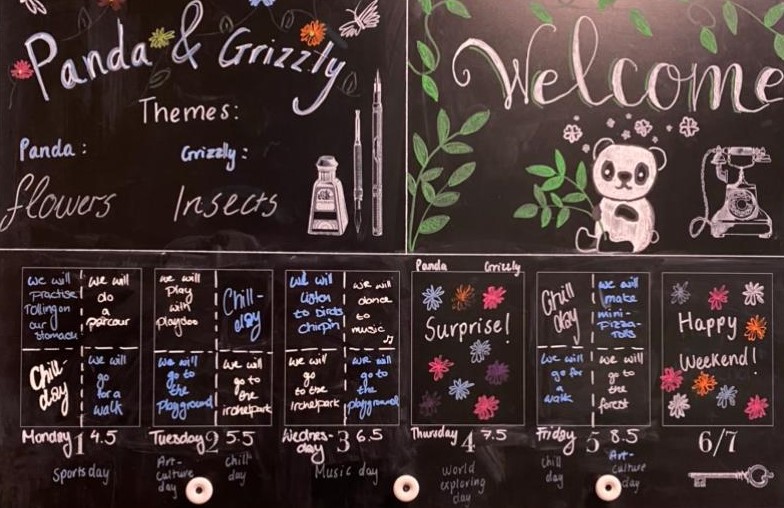 Panda & Grizzly
Themes:
Panda:
Grizzly:
flowers
Insects
Welcome
we will
practise
rolling on
our
stomach
we will
do
a
parcour
Chill-
day
we will
go
for a
walk
Monday 1 4.5
Sportsday
we will
play
with
playdoo
Chill-
day
we will
go to
the
playground
we will
go to
the
irchelpark
Tuesday 2 5.5
Art-
culture
day
chill
day
we will
listen
to birds
chirpin
we will
dance
to
music
we will
go
to the
Irchelpark
we will
go to
the
playground
Wednes-
day 3 6.5
Music day
Panda Grizzly
Surprise!
Thursday 4 7.5
world
exploring
day
Chill
day
we will
make
mini-
Pizza-
rolls
we will
go for
a
walk
we will
go to
the
forest
Friday 5 8.5
chill
day
Art-
culture
day
Happy
Weekend!
6/7